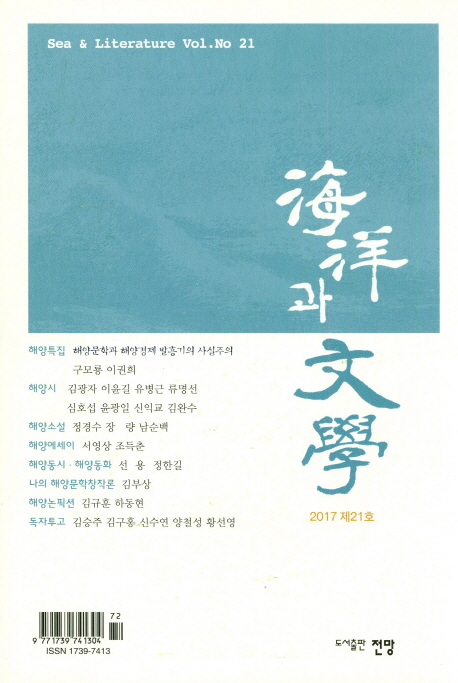 Sea & Literature Vol.No 21
海洋과
文學
해양특집 해양문학과 해양경제 발흥기의 사실주의
구모룡 이권희
해양시 김광자 이윤길 유병근 류명선
심호섭 윤광일 신익교 김완수
해양소설 정경수 장 량 남순백
해양에세이 서영상 조득춘
해양동시·해양동화 선 용 정한길
나의 해양문학창작론 김부상
해양논픽션 김규훈 하동현
독자투고 김승주 김구홍 신수연 양철성 황선영
2017 제21호
72
9 771739 741304
ISSN 1739-7413
도서출판 전망